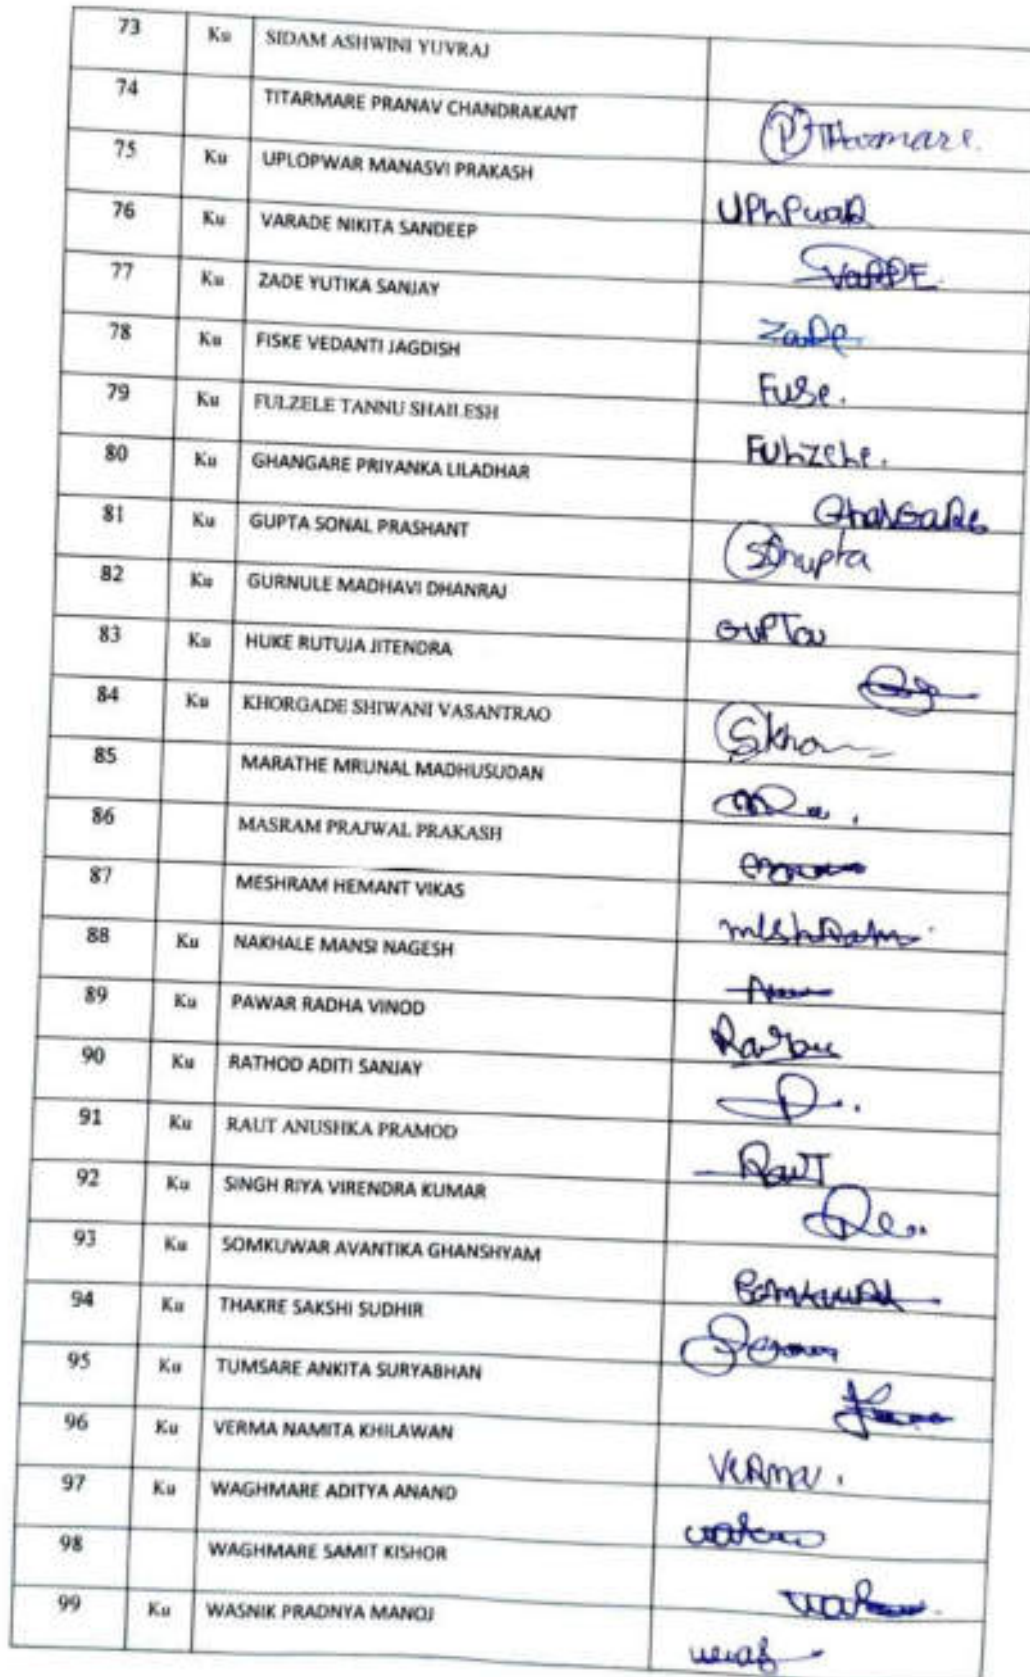 73 Ku SIDAM ASHWINI YUVRAJ
74 TITARMARE PRANAV CHANDRAKANT
75 Ku UPLOPWAR MANASVI PRAKASH
76 Ku VARADE NIKITA SANDEEP
77 Ku ZADE YUTIKA SANJAY Zade
78 Ku FISKE VEDANTI JAGDISH
79 Ku FULZELE TANNU SHAILESH
80 Ku GHANGARE PRIYANKA LILADHAR
81 Ku GUPTA SONAL PRASHANT
82 Ku GURNULE MADHAVI DHANRAJ Gupta
83 Ku HUKE RUTUJA JITENDRA
84 Ku KHORGADE SHIWANI VASANTRAO
85 MARATHE MRUNAL MADHUSUDAN
86 MASRAM PRAJWAL PRAKASH
87 MESHRAM HEMANT VIKAS
88 Ku NAKHALE MANSI NAGESH
89 Ku PAWAR RADHA VINOD
90 Ku RATHOD ADITI SANJAY
91 Ku RAUT ANUSHKA PRAMOD Raut
92 Ku SINGH RIYA VIRENDRA KUMAR
93 Ku SOMKUWAR AVANTIKA GHANSHYAM
94 Ku THAKRE SAKSHI SUDHIR
95 Ku TUMSARE ANKITA SURYABHAN
96 Ku VERMA NAMITA KHILAWAN Verma.
97 Ku WAGHMARE ADITYA ANAND
98 WAGHMARE SAMIT KISHOR
99 Ku WASNIK PRADNYA MANOJ